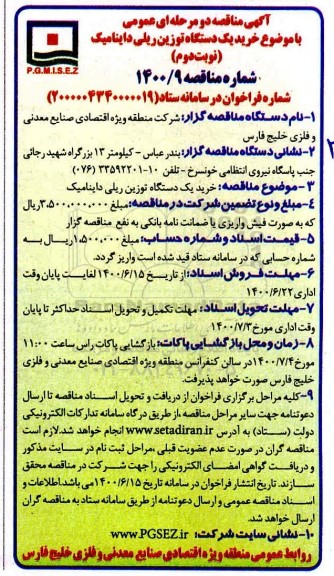 آگهی مناقصه دو مرحله ای عمومی
با موضوع خرید یک دستگاه توزین ریلی داینامیک
(نوبت دوم)
P.G.M.I.S.E.Z
شماره مناقصه ۱۴۰۰/۹
شماره فراخوان در سامانه ستاد(۲۰۰۰۰۰۴۳۴۰۰۰۰۰۱۹)
۱-نام دستگاه مناقصه گزار: شرکت منطقه ویژه اقتصادی صنایع معدنی
و فلزی خلیج فارس
۲-نشانی دستگاه مناقصه گزار: بندرعباس - کیلومتر ۱۳ بزرگراه شهید رجائی
جنب پاسگاه نیروی انتظامی خونسرخ - تلفن ۱۰-۳۳۵۹۲۲۰۱ (۰۷۶)
۳-موضوع مناقصه: خرید یک دستگاه توزین ریلی داینامیک
۴-مبلغ و نوع تضمین شرکت در مناقصه: مبلغ ۳،۵۰۰،۰۰۰،۰۰۰ریال
که به صورت فیش واریزی یا ضمانت نامه بانکی به نفع مناقصه گزار
۵-قیمت اسناد و شماره حساب: مبلغ ۱،۵۰۰،۰۰۰ریال به
شماره حسابی که در سامانه ستاد قید شده است واریز گردد.
۶-مهلت فروش اسناد: از تاریخ ۱۴۰۰/۶/۱۵ لغایت پایان وقت
اداری ۱۴۰۰/۶/۲۲
۷-مهلت تحویل اسناد: مهلت تکمیل و تحویل اسناد حداکثر تا پایان
وقت اداری مورخ ۱۴۰۰/۷/۳
۸-زمان و محل بازگشایی پاکات: بازگشایی پاکات راس ساعت ۱۱:۰۰
مورخ ۱۴۰۰/۷/۴ در سالن کنفرانس منطقه ویژه اقتصادی صنایع معدنی و فلزی
خلیج فارس صورت خواهد پذیرفت.
۹-کلیه مراحل برگزاری فراخوان از دریافت و تحویل اسناد مناقصه تا ارسال
دعوتنامه جهت سایر مراحل مناقصه ،از طریق درگاه سامانه تدارکات الکترونیکی
دولت (ستاد) به آدرس www.setadiran.ir انجام خواهد شد.لازم است
مناقصه گران در صورت عدم عضویت قبلی ،مراحل ثبت نام در سایت مذکور
و دریافت گواهی امضای الکترونیکی را جهت شرکت در مناقصه محقق
سازند. تاریخ انتشار فراخوان در سامانه تاریخ ۱۴۰۰/۶/۱۵ می باشد.اطلاعات و
اسناد مناقصه عمومی و ارسال دعوتنامه از طریق سامانه ستاد به مناقصه گران
ارسال خواهد شد.
۱۰-نشانی سایت شرکت: www.PGSEZ.ir
روابط عمومی منطقه ویژه اقتصادی صنایع معدنی و فلزی خلیج فارس